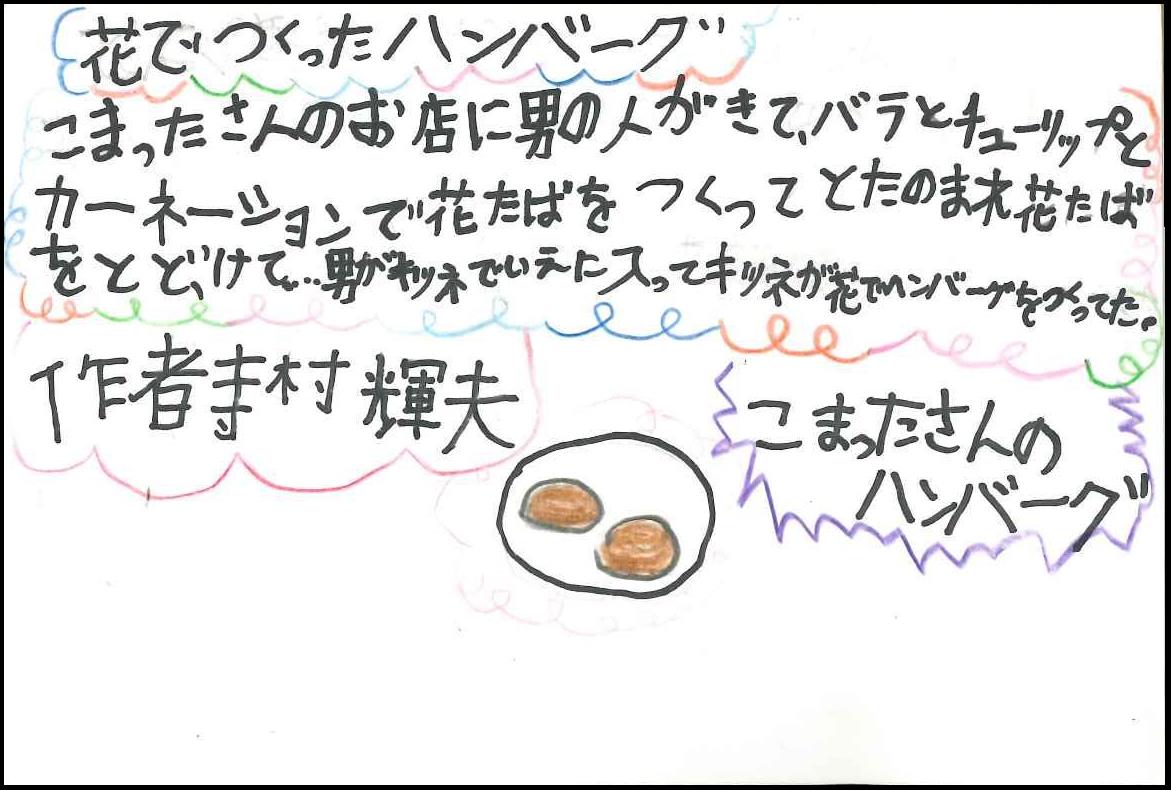 花でつくったハンバーグ
こまったさんのお店に男の人がきて、バラとチューリップと
カーネーションで花たばを つくって とたのまれ花たば
をとどけて…男がキツネでいえに入ってキツネが花でハンバーグをつくってた。
作者寺村輝夫
こまったさんの
ハンバーグ